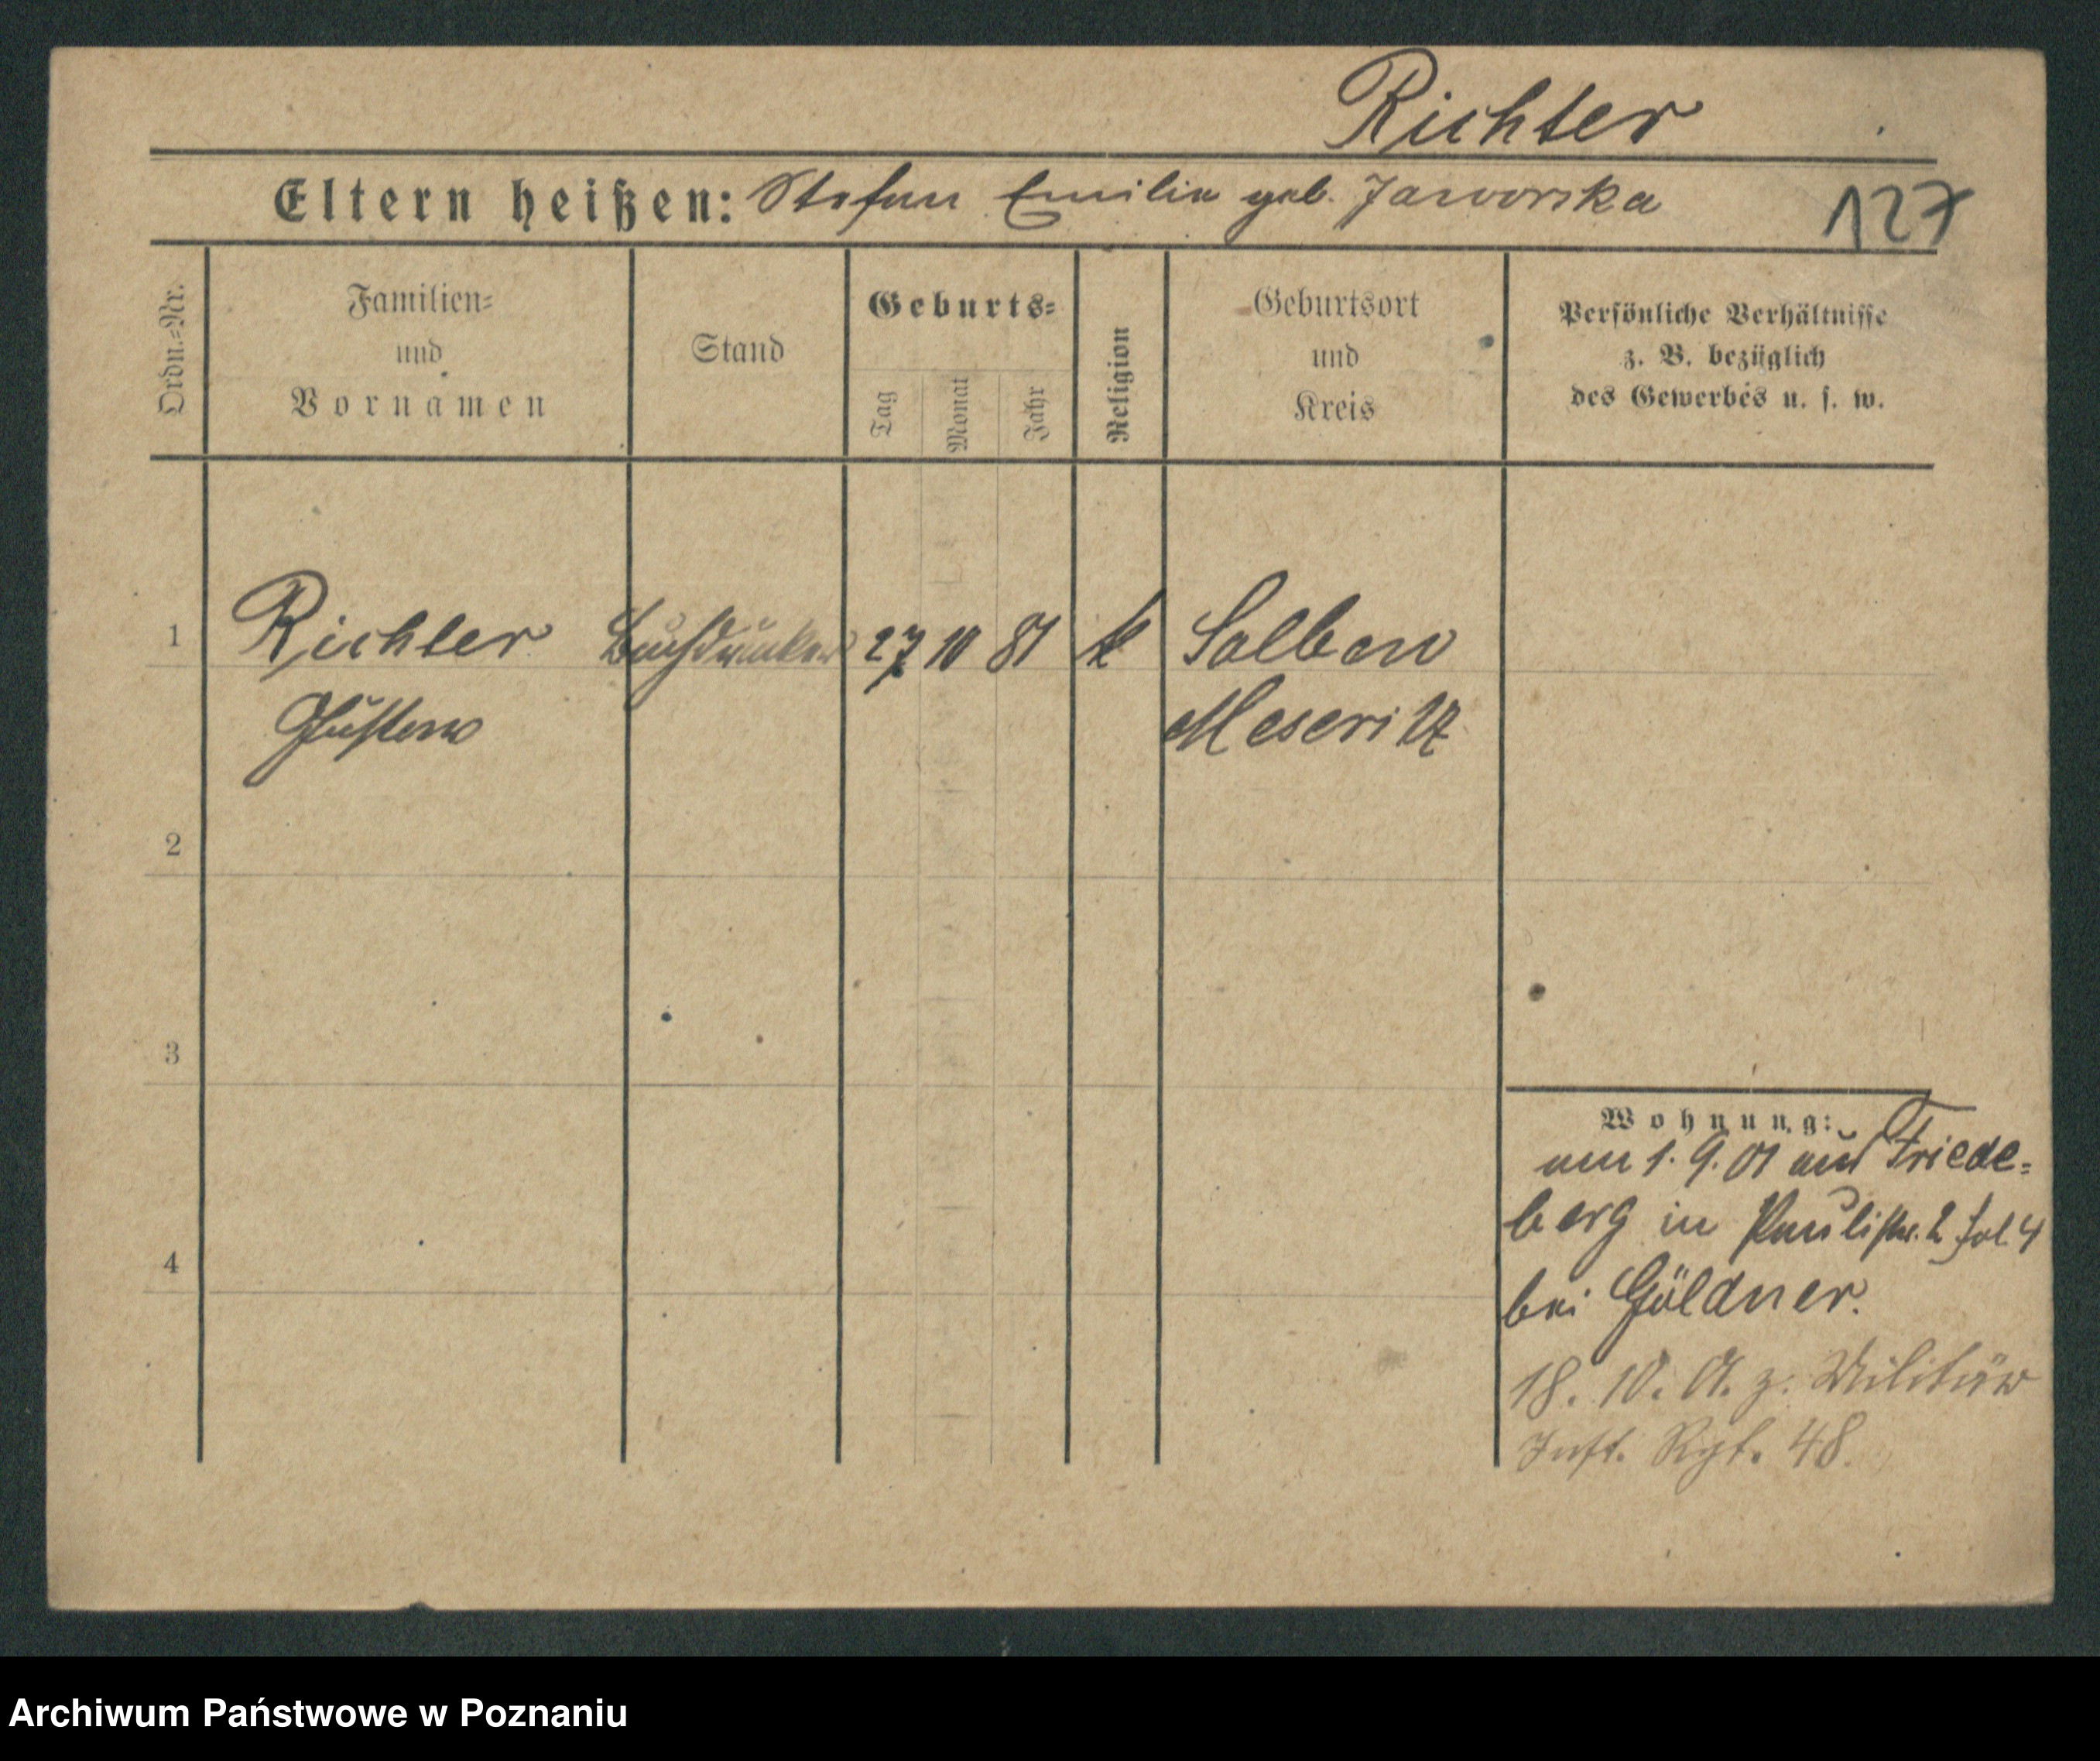 Richter
Eltern heißen: Stefan Emilie geb. Jaworska
127
Ordn.=Nr.
Familien=
und
Vornamen
Stand
Geburts=
Tag
Monat
Jahr
Religion
Geburtsort
und
Kreis
Persönliche Verhältnisse
z. B. bezüglich
des Gewerbes u. s. w.
1 Richter Buchdrucker 27 10 81 k Solben
Gustav Meseritz
2
3
4
Wohnung:
am 1. 9. 01 aus Friede=
berg in Paulistr. 2 fol. 4
bei Göldner.
18. 10. 01. z. Militär
Inft. Rgt. 48.
Archiwum Państwowe w Poznaniu